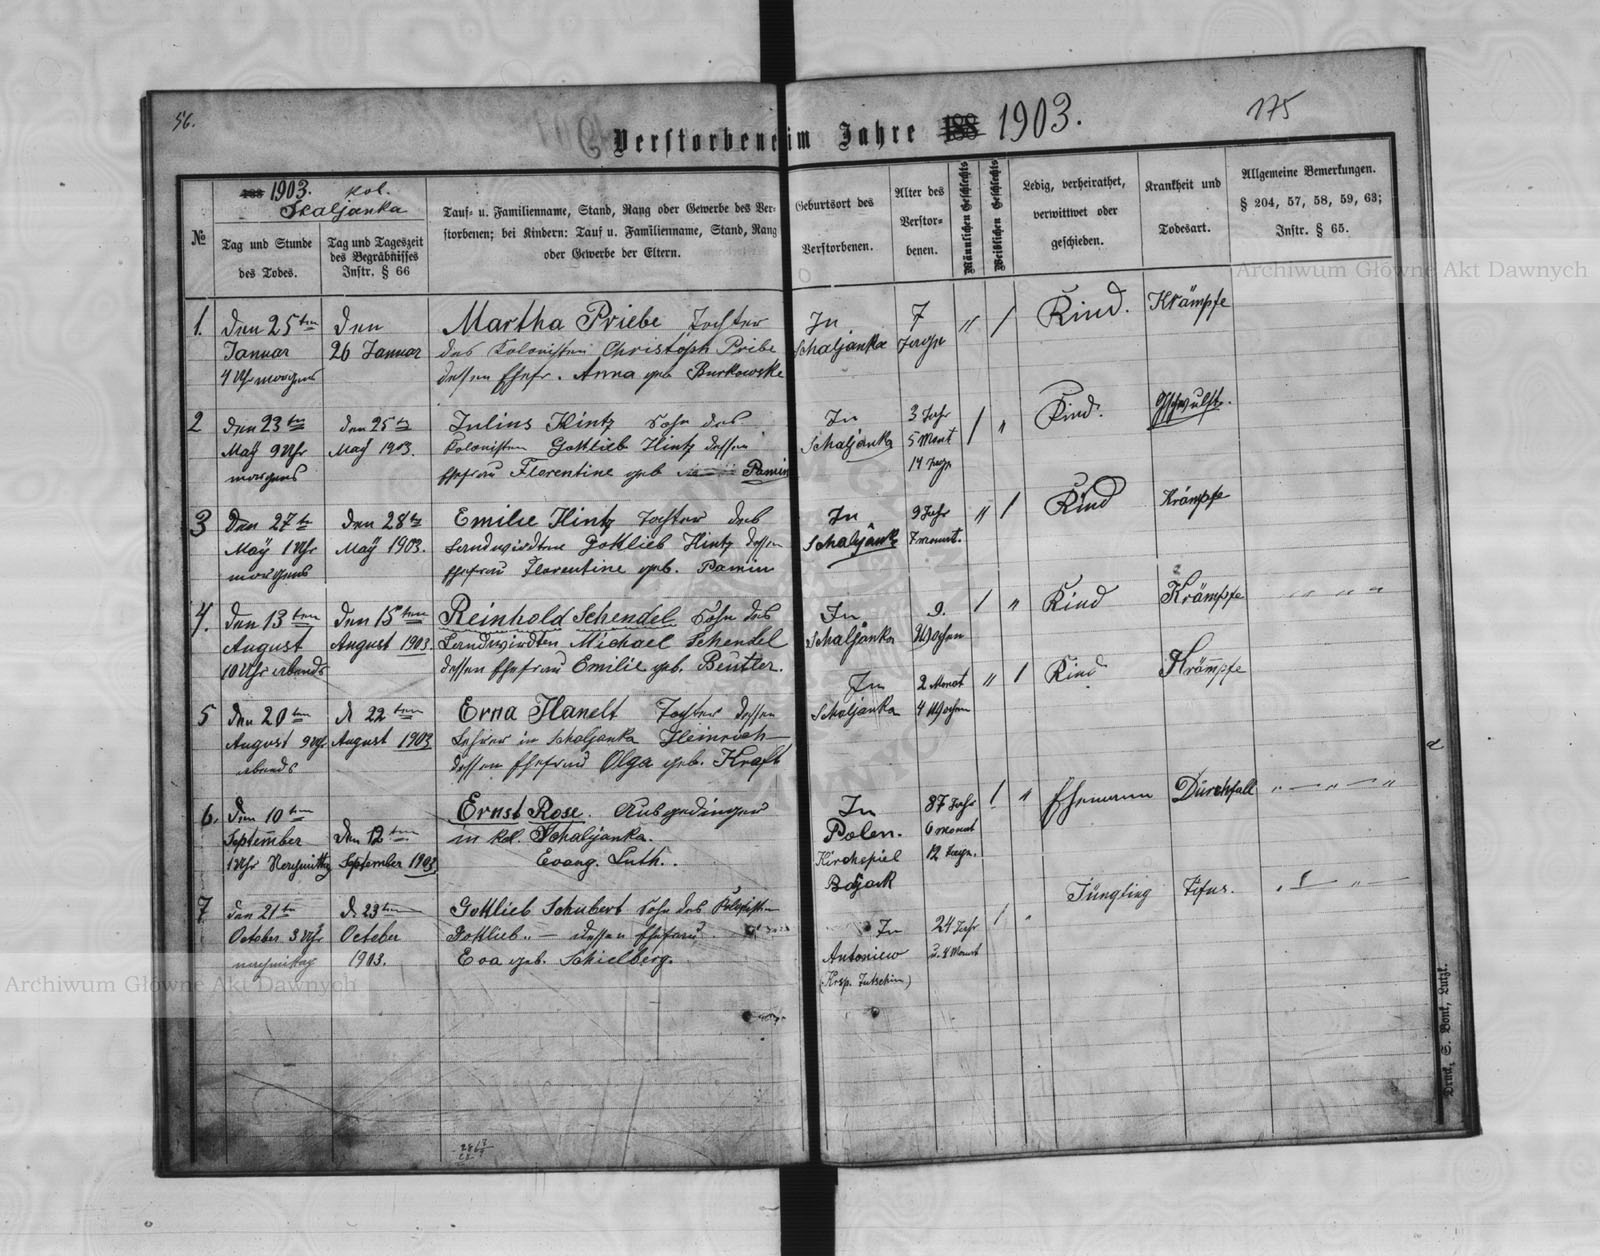 56.
175
Verstorbene im Jahre 188 1903.
188 1903. Kol.
Skaljanka
№
Tag und Stunde
des Todes.
Tag und Tageszeit
des Begräbnisses
Instr. § 66
Tauf- u. Familienname, Stand, Rang oder Gewerbe des Ver-
storbenen; bei Kindern: Tauf u. Familienname, Stand, Rang
oder Gewerbe der Eltern.
Geburtsort des
Verstorbenen.
Alter des
Verstor-
benen.
Männlichen Geschlechts
Weiblichen Geschlechts
Ledig, verheirathet,
verwittwet oder
geschieden.
Krankheit und
Todesart.
Allgemeine Bemerkungen.
§ 204, 57, 58, 59, 63;
Instr. § 65.
1.
Den 25ten
Januar
4 Uhr morgens
Den
26 Januar
Martha Priebe Tochter
des Kolonisten Christoph Pribe
dessen Ehefr. Anna geb Burkowske
In
Schaljanka
7
Tage
" /
Kind.
Krämpfe
2
den 23ten
May 9 Uhr
morgens
den 25te
May 1903.
Julius Hintz Sohn des
Kolonisten Gottlieb Hintz dessen
Ehefrau Florentine geb Pamin
In
Schaljanka
3 Jahr
5 Mont
14 Tage
/ "
Kind.
Geschwulst.
3
Den 27te
May 1 Uhr
morgens
Den 28te
May 1903.
Emilie Hintz Tochter des
Landwirdten Gottlieb Hintz dessen
Ehefrau Florentine geb. Pamin
In
Schaljank
9 Jahr
7 monat.
" /
Kind
Krämpfe
4.
den 13ten
August
10 Uhr abends
den 15ten
August 1903
Reinhold Schendel Sohn des
Landwirdten Michael Schendel
dessen Ehefrau Emilie geb. Beutler.
In
Schaljanka
9.
Wochen
/ "
Kind
Krämpfe
5
den 20ten
August 9 Uhr
abends
d 22ten
August 1903
Erna Hanelt Tochter dessen
Lehrer in Schaljanka Heinrich
dessen Ehefrau Olga geb. Kraft
In
Schaljanka
2 Monat
4 Wochen
" /
Kind
Krämpfe
6.
Den 10ten
September
1 Uhr Nachmittag
Den 12ten
September 1903
Ernst Rose. Ausgedinger
in Kol. Schaljanka.
Evang. Luth.
In
Polen.
Kirchspiel
87 Jahr
6 monat
12 Tage.
/ "
Ehemann
Durchfall
7
den 21te
October 3 Uhr
nachmittag
d 23ten
October
1903.
Gottlieb Schubert Sohn des
Gottlieb " dessen Ehefrau
Eva geb. Schielberg.
In
Antoniew
(Krsp. Tutschin)
24 Jahr
u. 4 Monat
/ "
Jüngling
Tifus.
Druck, S. Bonk, Lutzk.
Archiwum Główne Akt Dawnych
Archiwum Główne Akt Dawnych